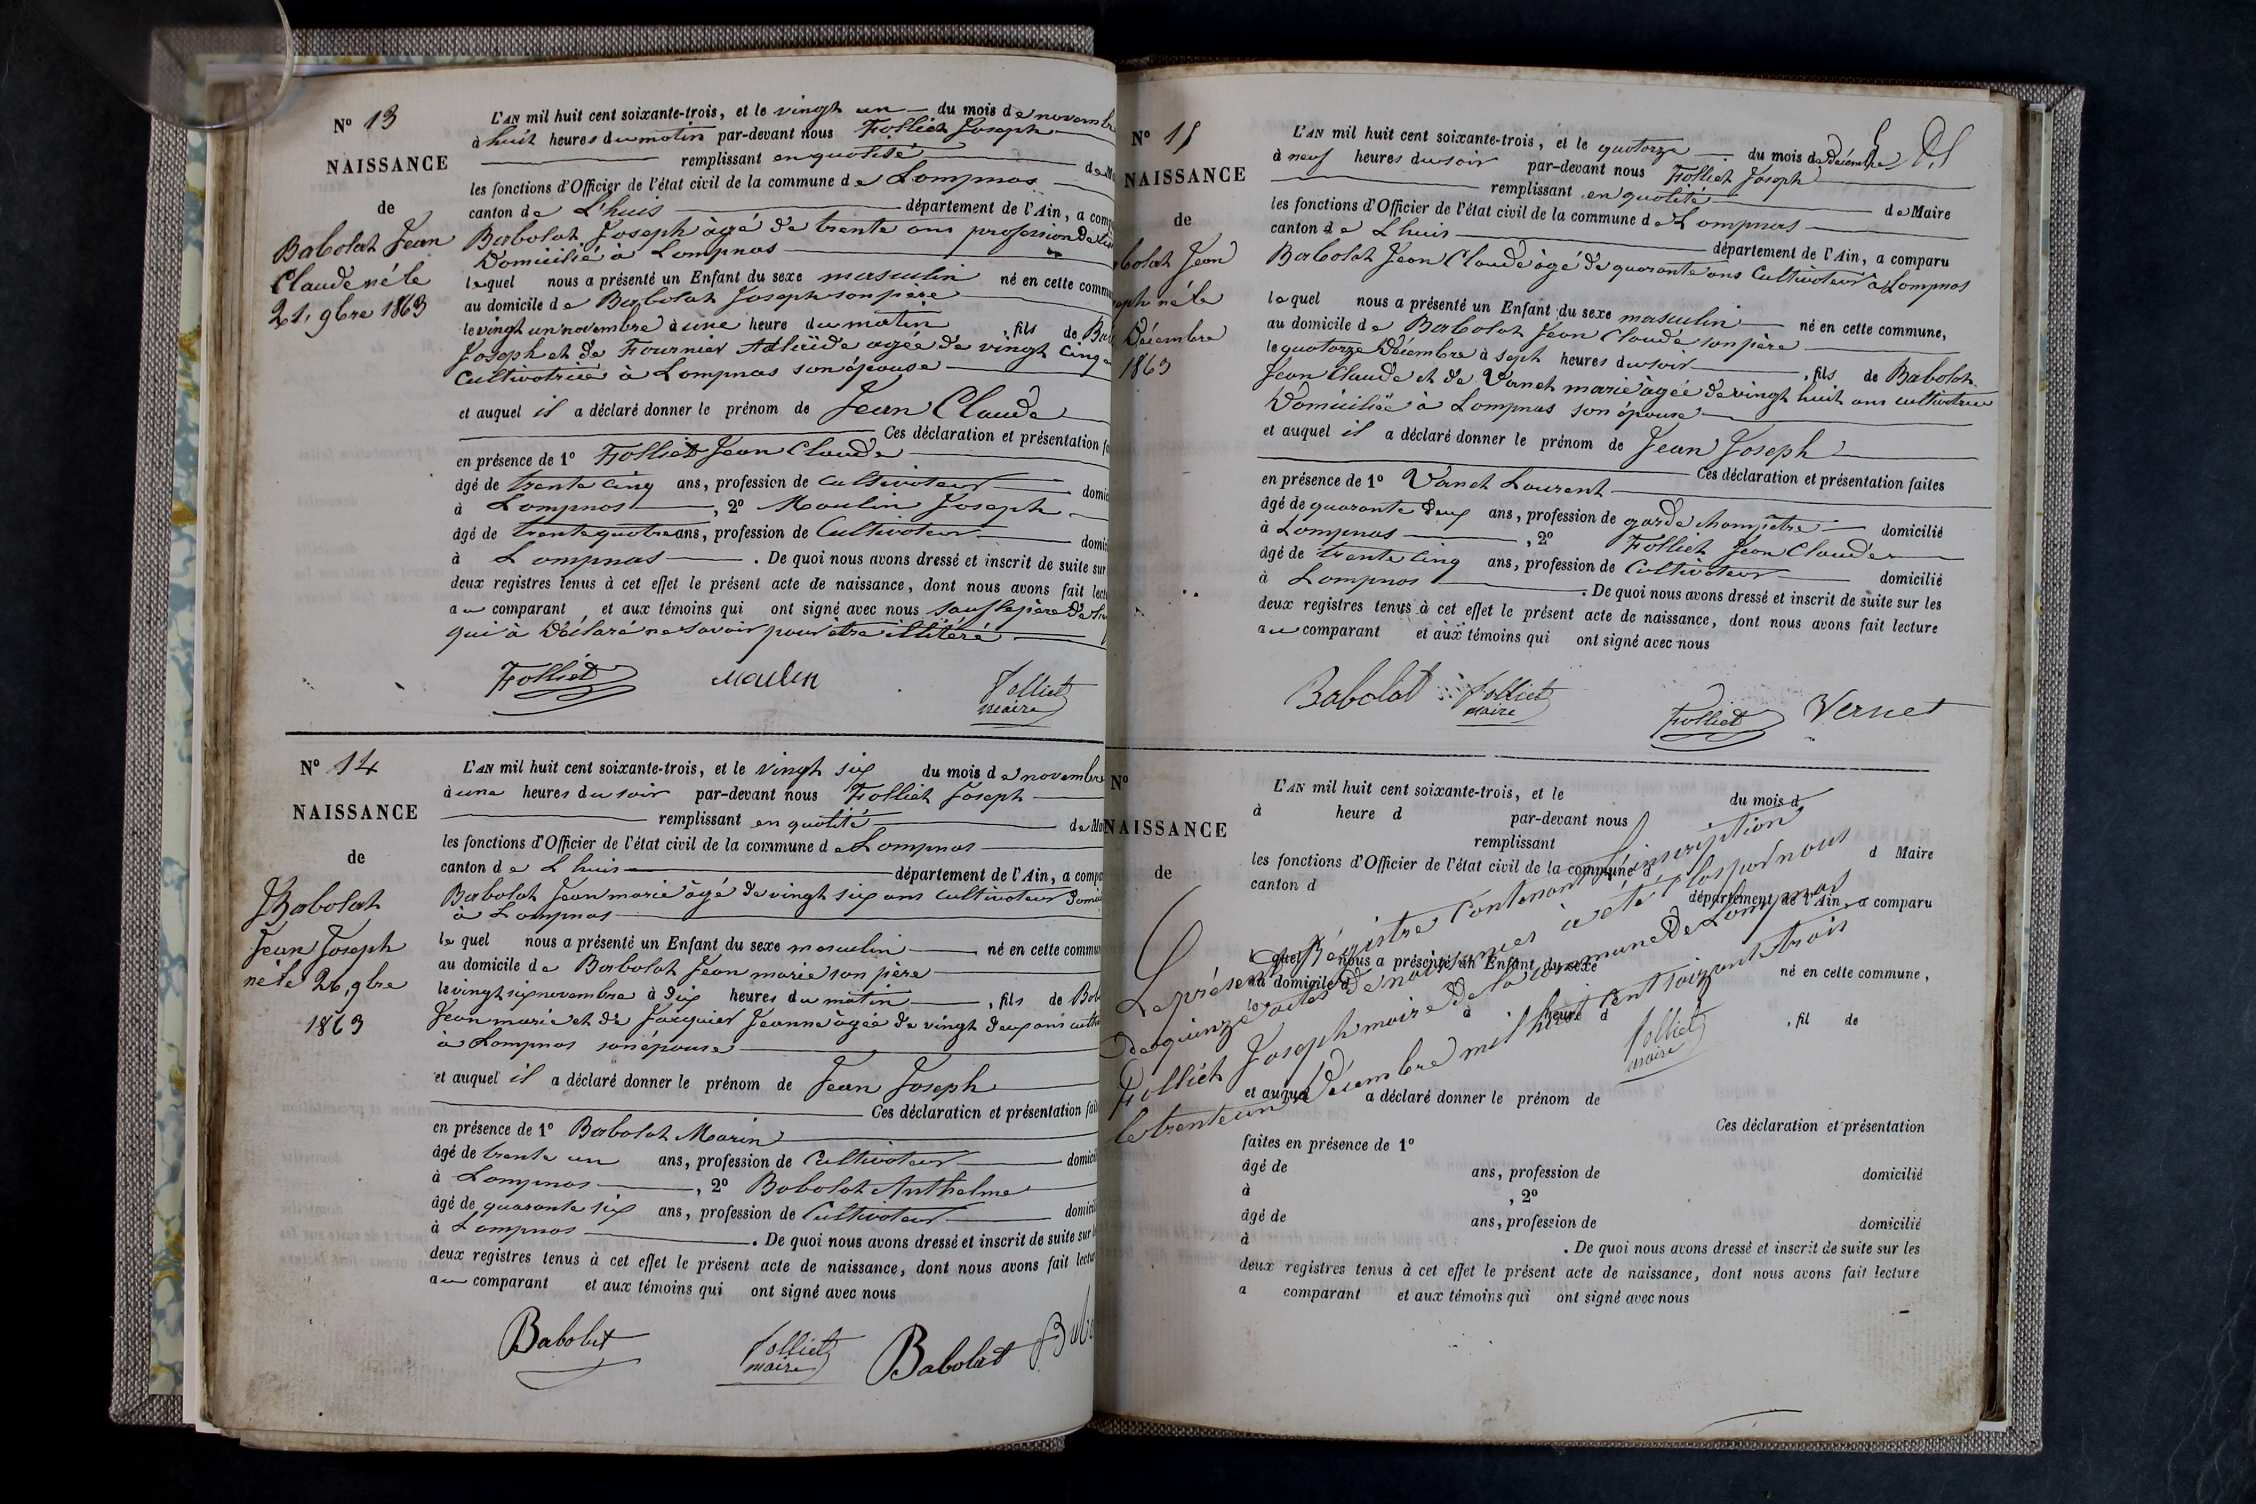 N° 13
NAISSANCE
de
Babolat Jean
Claude né le
21, 9bre 1863
L'AN mil huit cent soixante-trois, et le vingt un du mois de novembre
à huit heures du matin par-devant nous Folliet Joseph
remplissant en qualité de Ma
les fonctions d'Officier de l'état civil de la commune de Lompnas
canton de L'huis département de l'Ain, a comp
Babolat Joseph âgé de trente ans profession de
Domicilié à Lompnas
lequel nous a présenté un Enfant du sexe masculin né en cette commu
au domicile de Babolat Joseph son père
le vingt un novembre à une heure du matin, fils de Bab
Joseph et de Fournier Adélaïde agée de vingt cinq
cultivatrice à Lompnas son épouse
et auquel il a déclaré donner le prénom de Jean Claude
Ces déclaration et présentation fa
en présence de 1° Folliet Jean Claude
âgé de trente cinq ans, profession de Cultivateur domic
à Lompnas, 2° Moulin Joseph
âgé de trente quatre ans, profession de Cultivateur domic
à Lompnas. De quoi nous avons dressé et inscrit de suite sur
deux registres tenus à cet effet le présent acte de naissance, dont nous avons fait lect
au comparant, et aux témoins qui ont signé avec nous sauf le père de
qui à Déclaré ne savoir pour être illitéré
Folliet Moulin Folliet
maire
N° 14
NAISSANCE
de
Babolat
Jean Joseph
né le 26, 9bre
1863
L'AN mil huit cent soixante-trois, et le vingt six du mois de novembre
à une heures du soir par-devant nous Folliet Joseph
remplissant en qualité de Mai
les fonctions d'Officier de l'état civil de la commune de Lompnas
canton de L'huis département de l'Ain, a compa
Babolat Jean marie âgé de vingt six ans cultivateur Domic
à Lompnas
lequel nous a présenté un Enfant du sexe masculin né en cette commun
au domicile de Babolat Jean marie son père
le vingt six novembre à dix heures du matin, fils de Bab
Jean marie et de Jacquier Jeanne âgée de vingt deux ans culti
à Lompnas son épouse
et auquel il a déclaré donner le prénom de Jean Joseph
Ces déclaration et présentation fai
en présence de 1° Babolat Marin
âgé de trente un ans, profession de Cultivateur domici
à Lompnas, 2° Babolat Anthelme
âgé de quarante six ans, profession de Cultivateur domicil
à Lompnas. De quoi nous avons dressé et inscrit de suite sur
deux registres tenus à cet effet le présent acte de naissance, dont nous avons fait lectu
au comparant et aux témoins qui ont signé avec nous
Babolat Folliet Babolat Bab
maire
N° 15
NAISSANCE
de
bolat Jean
eph né le
Décembre
1863
L'AN mil huit cent soixante-trois, et le quatorze du mois de Décembre
à neuf heures du soir par-devant nous Folliet Joseph
remplissant en qualité de Maire
les fonctions d'Officier de l'état civil de la commune de Lompnas
canton de L'huis département de l'Ain, a comparu
Babolat Jean Claude âgé de quarante ans Cultivateur à Lompnas
lequel nous a présenté un Enfant du sexe masculin né en cette commune,
au domicile de Babolat Jean Claude son père
le quatorze Décembre à sept heures du soir, fils de Babolat
Jean Claude et de Vanet marie âgée de vingt huit ans cultivatrice
Domiciliée à Lompnas son épouse
et auquel il a déclaré donner le prénom de Jean Joseph
Ces déclaration et présentation faites
en présence de 1° Vanet Laurent
âgé de quarante deux ans, profession de garde champêtre domicilié
à Lompnas, 2° Folliet Jean Claude
âgé de trente cinq ans, profession de Cultivateur domicilié
à Lompnas. De quoi nous avons dressé et inscrit de suite sur les
deux registres tenus à cet effet le présent acte de naissance, dont nous avons fait lecture
au comparant et aux témoins qui ont signé avec nous
Babolat Folliet Folliet Vernet
maire
N°
NAISSANCE
de
L'AN mil huit cent soixante-trois, et le du mois d
à heure d par-devant nous
remplissant d Maire
les fonctions d'Officier de l'état civil de la commune d
canton d département de l'Ain, a comparu
quel nous a présenté un Enfant du sexe né en cette commune,
au domicile d
le à heure d, fil de
et auquel a déclaré donner le prénom de
Ces déclaration et présentation
faites en présence de 1°
âgé de ans, profession de domicilié
à, 2°
âgé de ans, profession de domicilié
à. De quoi nous avons dressé et inscrit de suite sur les
deux registres tenus à cet effet le présent acte de naissance, dont nous avons fait lecture
a comparant et aux témoins qui ont signé avec nous
Le présent Régistre contenant l'inscription
de quinze actes de naissances à été clos par nous
Folliet Joseph maire de la commune de Lompnas
le trente un Décembre mil huit cent soixante trois
Folliet
maire